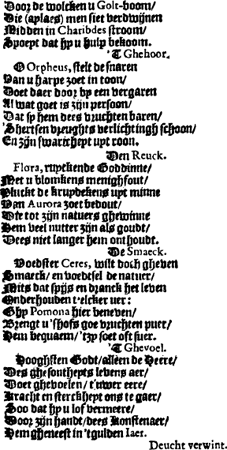 Door de wolcken u Golt-boom/
Die (aplaes) men siet verdwijnen
Midden in Charibdes stroom/
Spoept dat hy u hulp bekoom.
'T Ghehoor.
O Orpheus, stelt de snaren
Van u harpe zoet in toon/
Doet daer door by een vergaren
Al wat goet is zijn persoon/
Dat sy hem dees vruchten baren/
'Shertsen vreughts verlichtingh schoon/
En zijn swaricheyt upt roon.
Den Reuck.
Flora, rupckende Goddinne/
Met u blomkens menighfout/
Pluckt de kruydekens upt minne
Van Aurora zoet bedout/
Die tot zijn natuers ghewinne
Hem veel nutter zijn als goudt/
Dees niet langer hem onthoudt.
De Smaeck.
Voedster Ceres, wilt doch gheven
Smaeck/ en voedtsel de natuer/
Mits dat spijs en dranck het leven
Onderhouden t'elcker uer:
Ghy Pomona hier beneven/
Brengt u 'shofs goe vruchten puer/
Hem bequaem/ 'tzy soet oft suer.
'T Ghevoel.
Hooghsten Godt/ alleen de Heere/
Des ghesontheyts levens aer/
Doet ghevoelen/ t'uwer eere/
Kracht en sterckheyt ons te gaer/
Soo dat hy u lof vermeere/
Door zijn handt/ dees Konstenaer/
Hem gheneest in 'tgulden Iaer.
Deucht verwint.